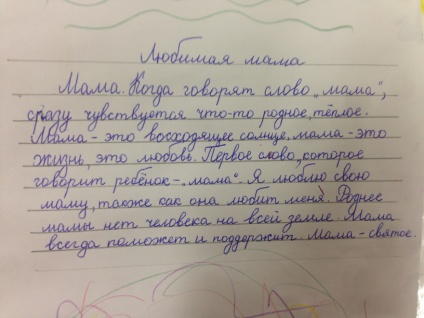 Любимая мама
Мама. Когда говорят слово „мама“,
сразу чувствуется что-то родное, тёплое.
Мама - это восходящее солнце, мама - это
жизнь, это любовь. Первое слово, которое
говорит ребёнок - „мама“. Я люблю свою
маму, также как она любит меня. Роднее
мамы нет человека на всей земле. Мама
всегда поможет и поддержит. Мама - святое.